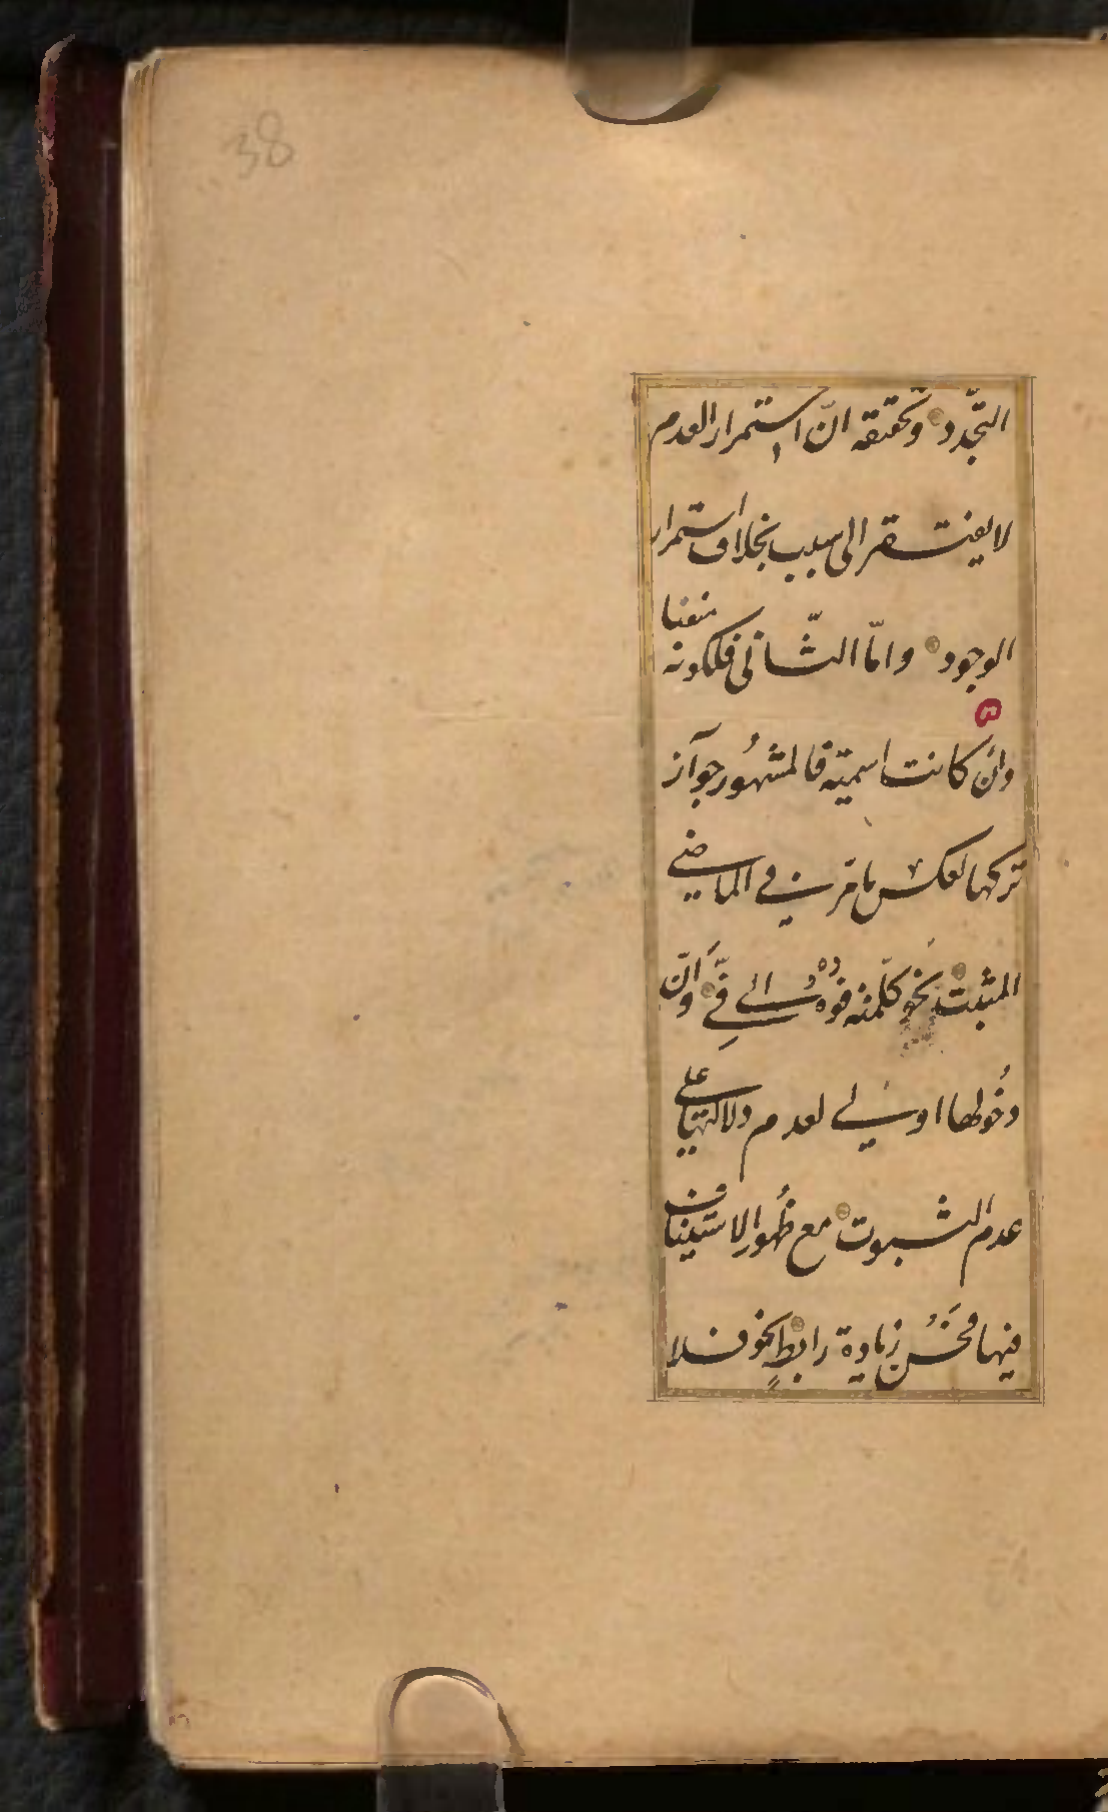 38
التجّدد وتحقيقه انّ استمرار العدم
لا يفتقر الى سبب بخلاف استمرار
الوجود وامّا الثّانى فلكونه منفيا
وان كانت اسمية فالمشهُور جوآز
تركها لعكس ما مرّ فے الماضے
المثبت نحو كلّمته فوه الے فِيّ وَانّ
دخُولها اولے لعدم دلالتها علے
عدم الثبوت مع ظُهور الاستيناف
فيها فحَسُن زيادة رابطٍ نحو فلا